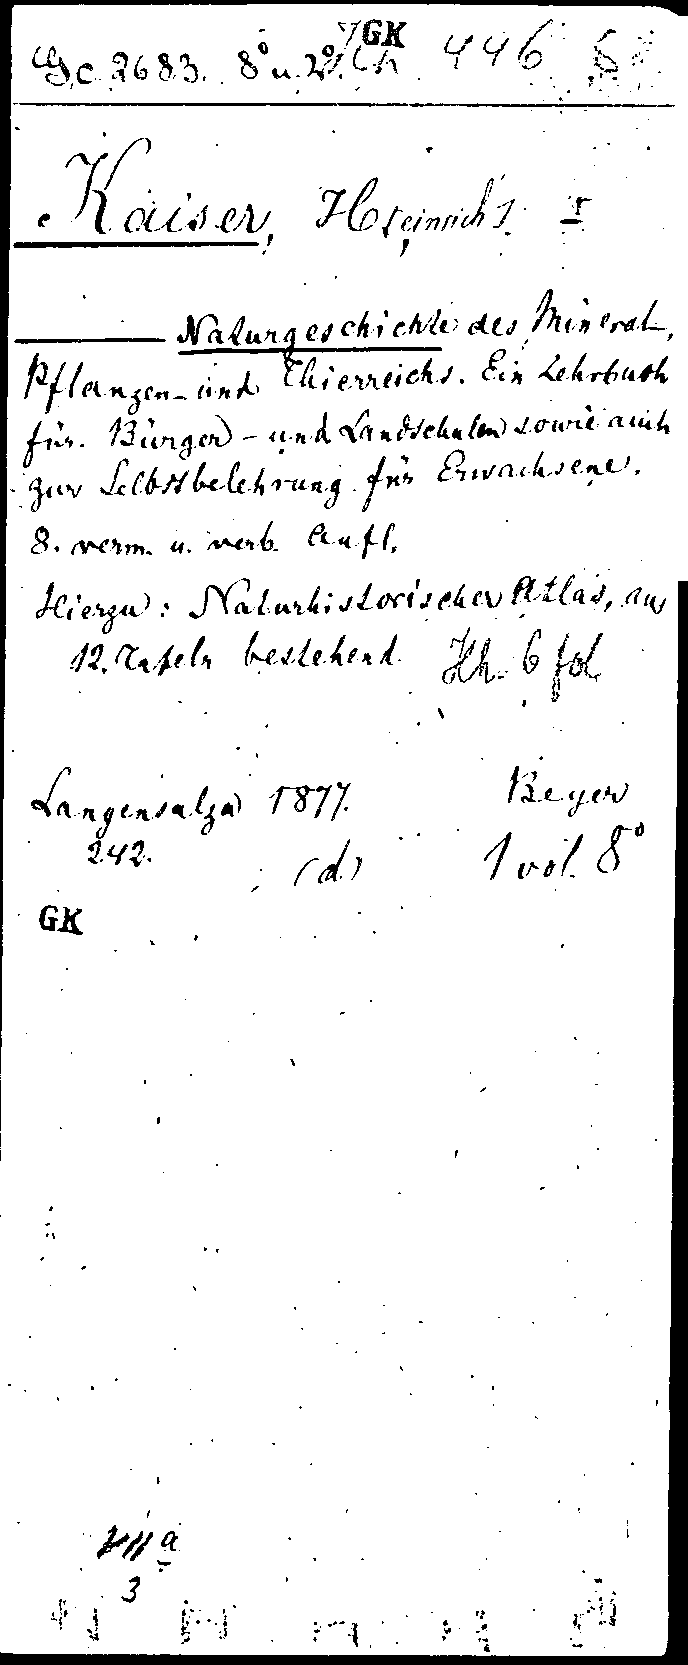 GK
Gc 2683. 8° u. 2°. Hh 446 8°
Kaiser, H[einrich].
Naturgeschichte des Mineral-,
Pflanzen- und Thierreichs. Ein Lehrbuch
für Bürger- und Landschulen sowie auch
zur Selbstbelehrung für Erwachsene.
8. verm. u. verb. Aufl.
Hierzu: Naturhistorischer Atlas, aus
12 Tafeln bestehend. Hh. 6 fol.
Langensalza 1877. Beyer
242. (d.) 1 vol. 8°
GK
VII a
3